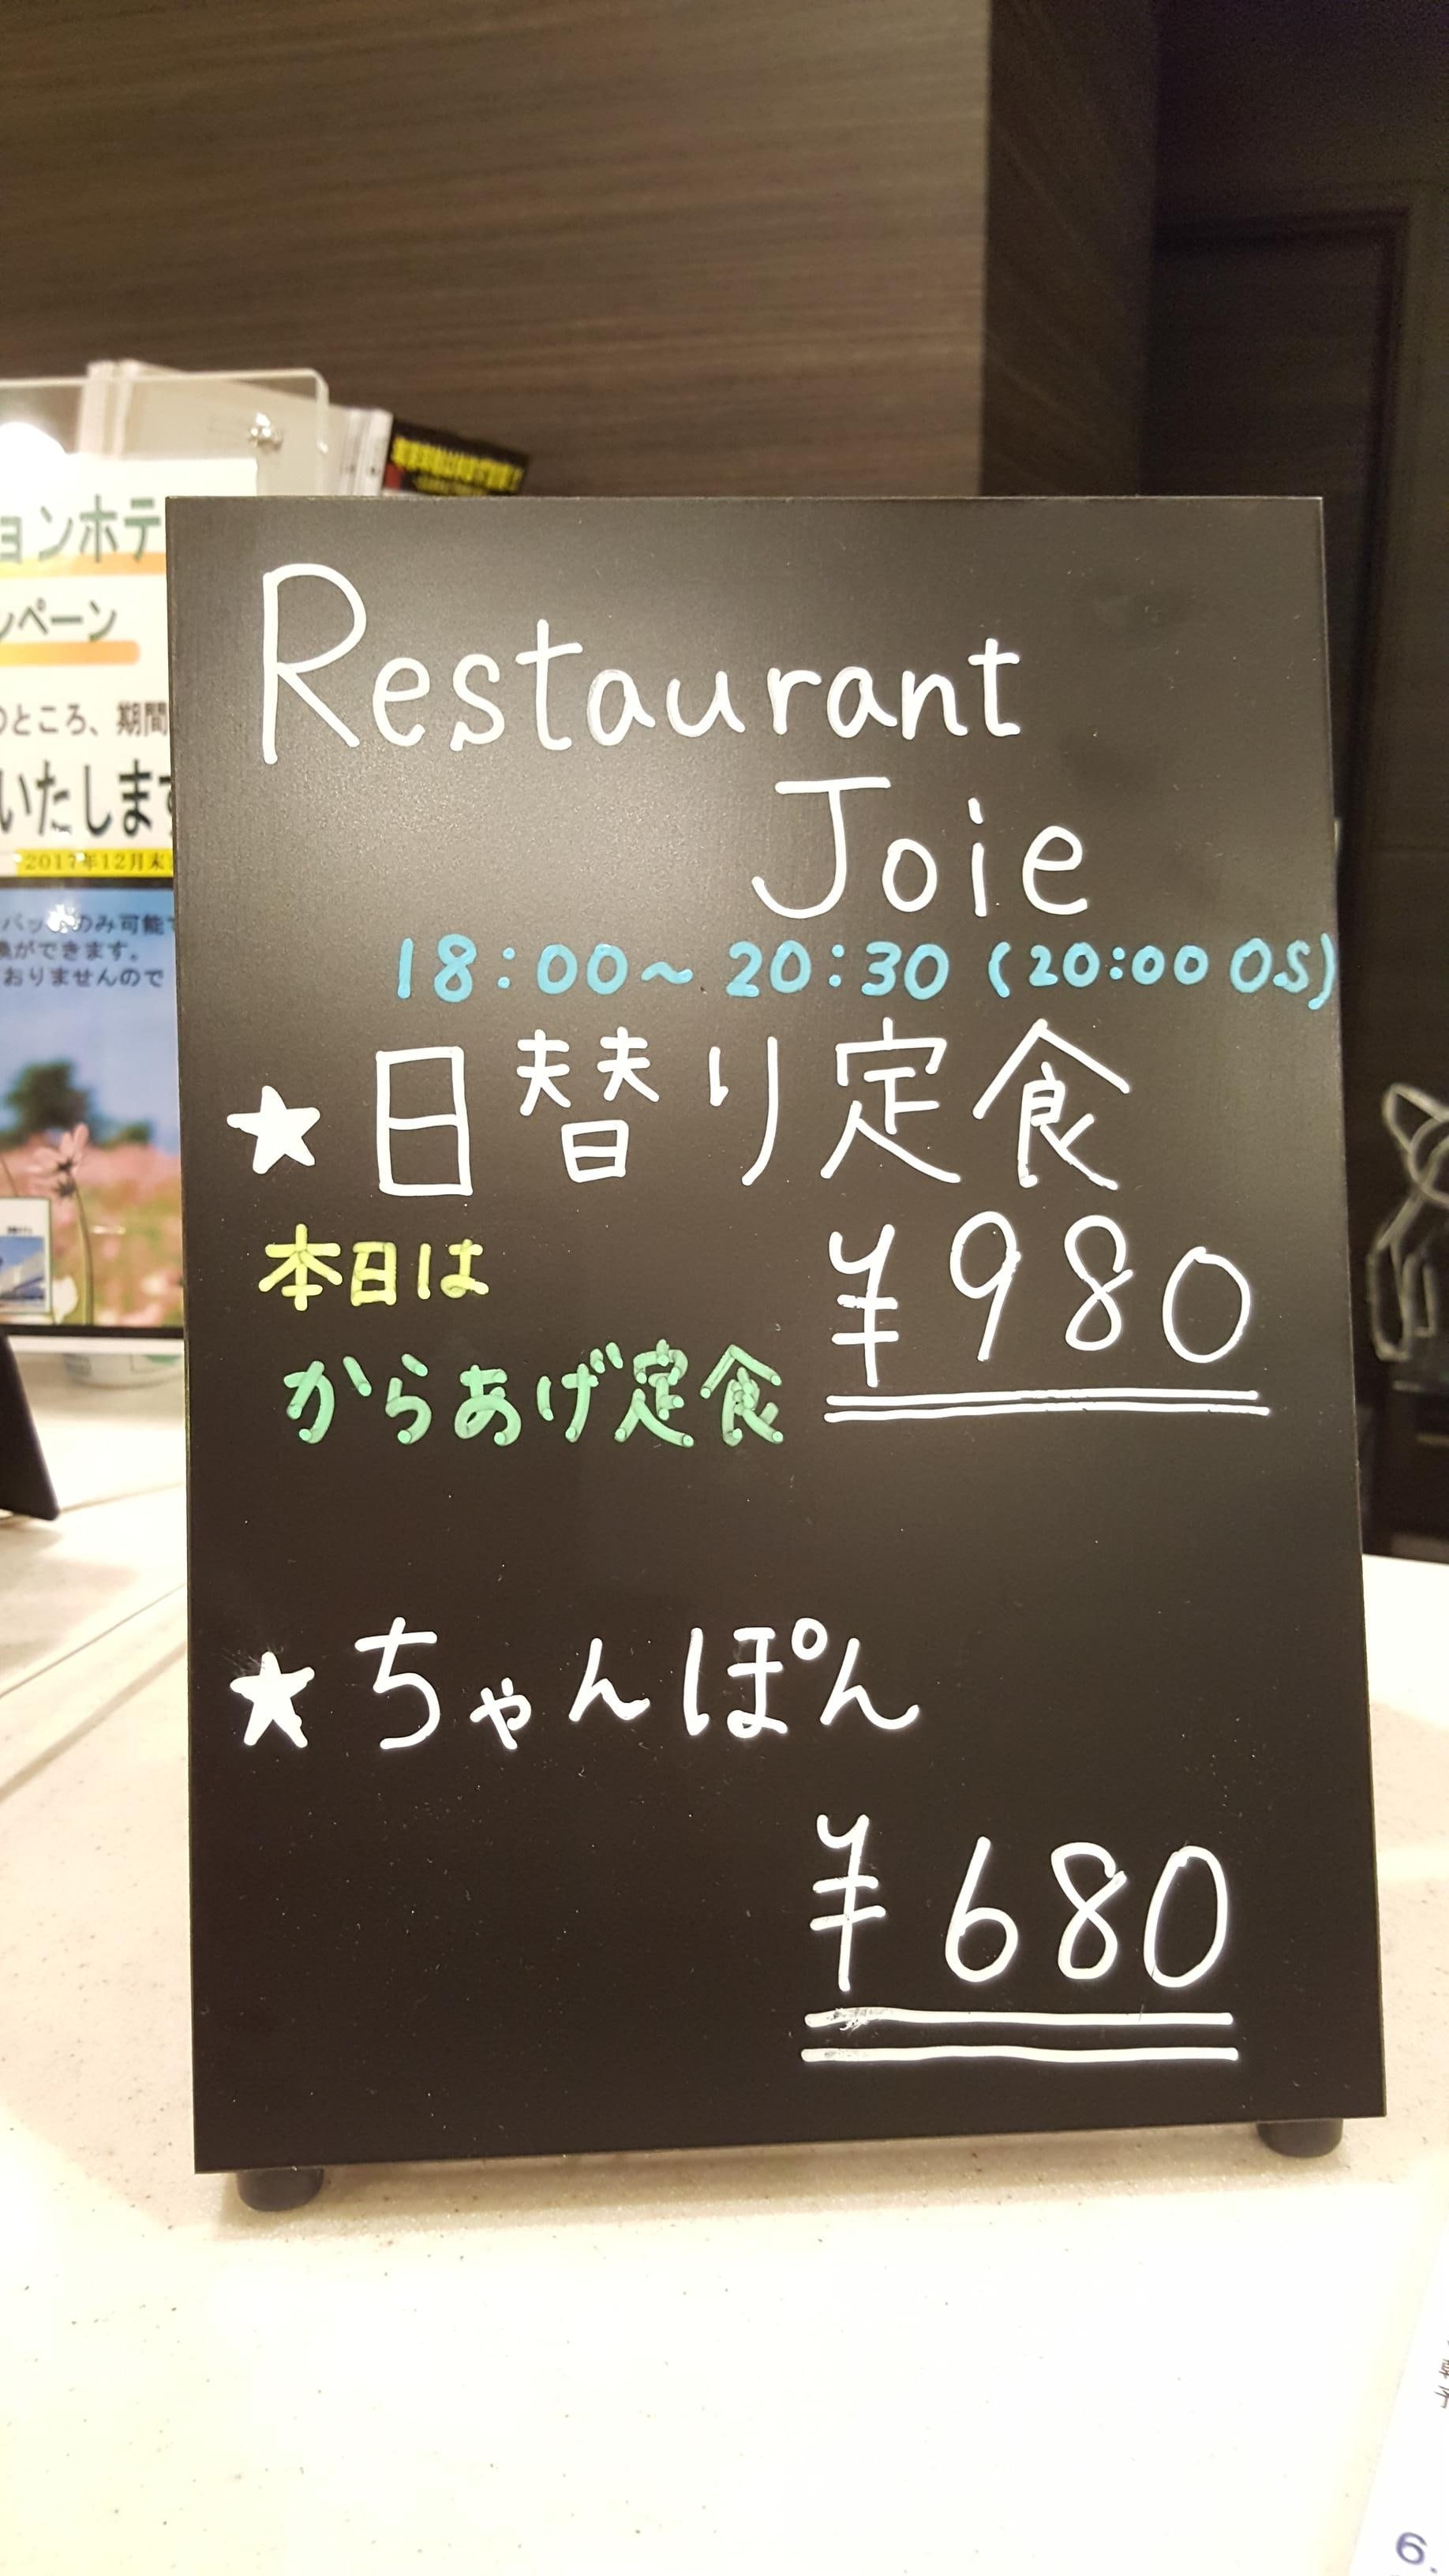 Restaurant
Joie
18:00~20:30 (20:00 OS)
★日替り定食
¥980
本日は
からあげ定食
★ちゃんぽん
¥680
ョンホテ
ンペーン
のところ、期間
いたします
2017年12月末
のみ可能で
換ができます。
おりませんので
6.